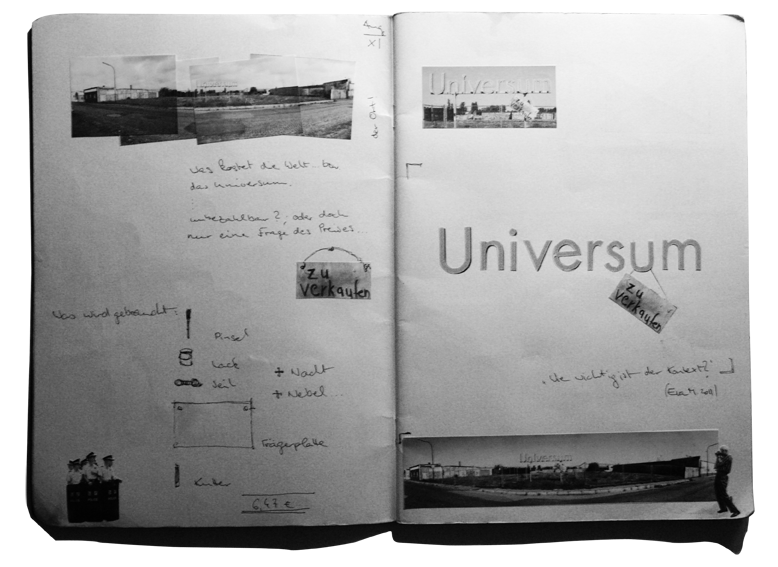 XI
der Ort!
Was kostet die Welt... bzw
das Universum.
unbezahlbar?, oder doch
nur eine Frage des Preises...
zu
verkaufen
Was wird gebraucht:
Pinsel
Lack
Seil
+ Nacht
+ Nebel...
Trägerplatte
6,47 €
Universum
Universum
zu
verkaufen
"Wie wichtig ist der Kontext?"
(Eva M. 2011)
Universum